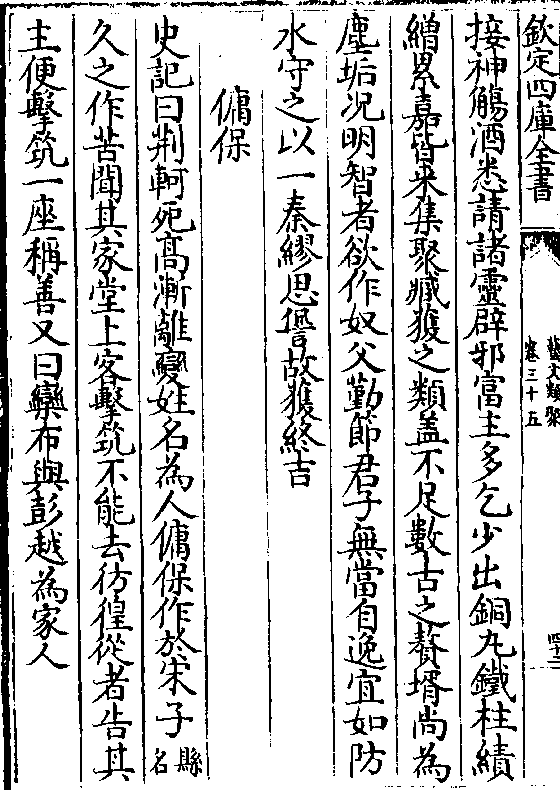 欽定四庫全書
藝文類聚
卷三十五
四十二
接神觴酒悉請諸靈辟邪富主多乞少出銅丸鐵柱績
繒累嘉皆来集聚臧獲之類蓋不足數古之贅壻尚為
塵垢况明智者欲作奴父勤節君子無當自逸宜如防
水守之以一秦繆思愆故獲終吉
傭保
史記曰荆軻死高漸離變姓名為人傭保作於宋子縣名
久之作苦聞其家堂上客擊筑不能去彷徨從者告其
主便擊筑一座稱善又曰欒布與彭越為家人